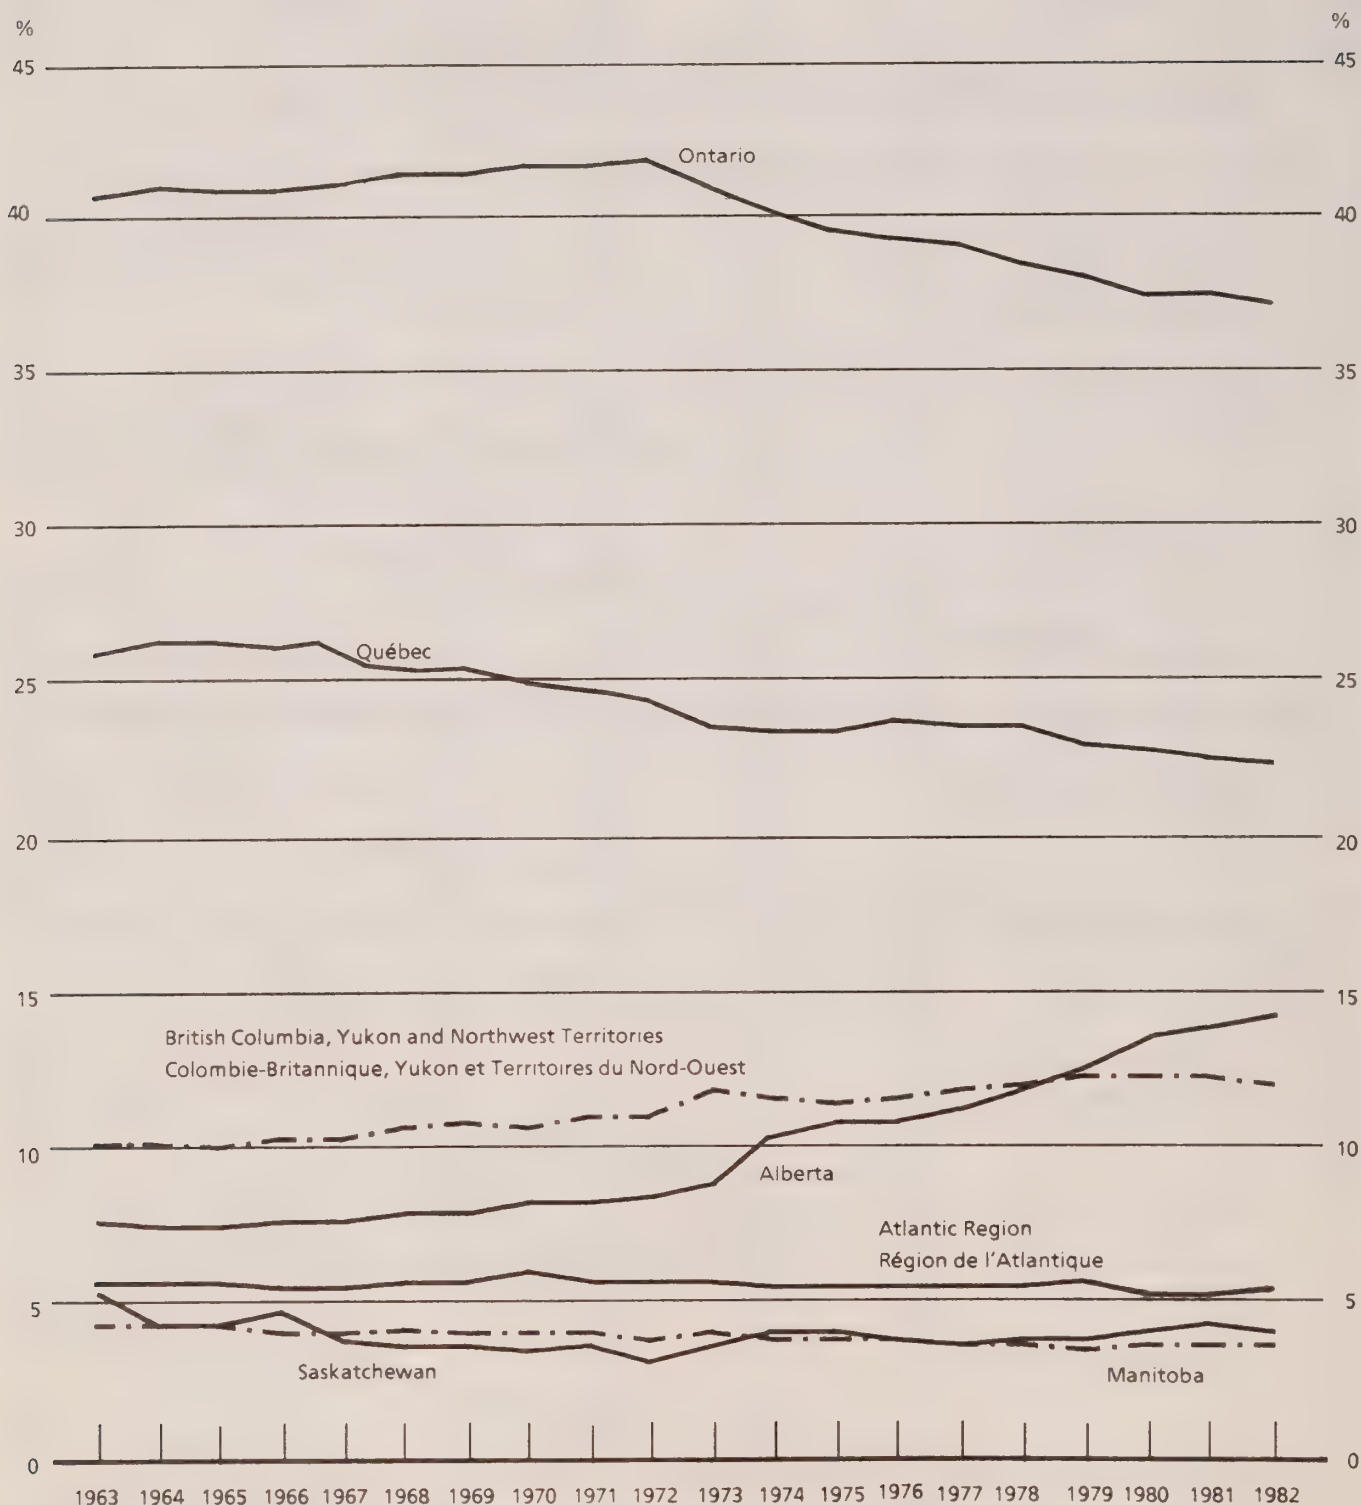 % %
45 45
Ontario
40 40
35 35
30 30
Québec
25 25
20 20
15 15
British Columbia, Yukon and Northwest Territories
Colombie-Britannique, Yukon et Territoires du Nord-Ouest
10 10
Alberta
Atlantic Region
Région de l'Atlantique
5 5
Saskatchewan Manitoba
0 0
1963 1964 1965 1966 1967 1968 1969 1970 1971 1972 1973 1974 1975 1976 1977 1978 1979 1980 1981 1982